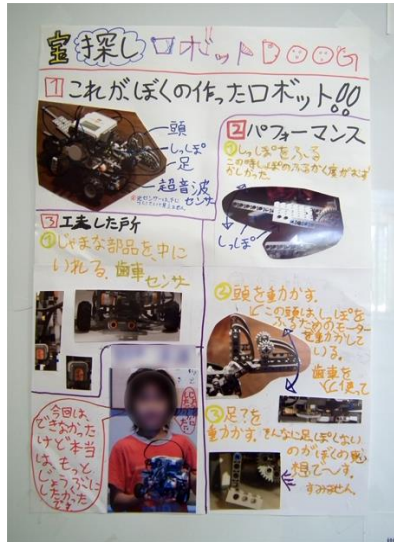 宝探しロボットDOOG
1 これが、ぼくの作ったロボット!!
頭
しっぽ
足
超音波
センサ
2 パフォーマンス
①しっぽをふる
しっぽ
3 工夫した所
①じゃまな部品を中に
いれてる。歯車センサー
②頭を動かす。
この頭は、しっぽを
ふるためのモーター
を動力にして
いる。
歯車を
使って
③足?を
動かす。そんなに足っぽくない
のがぼくの感
想で〜す。
すみません
今回は、
できなかった
けど本当
は、もっと
じょうぶに
したかった
です